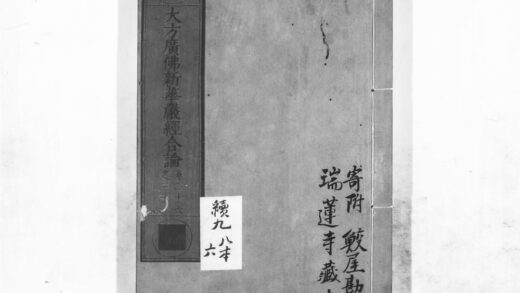 大方廣佛新華嚴經合論
續九 八本
六
寄附 鮫屋勘
瑞蓮寺藏